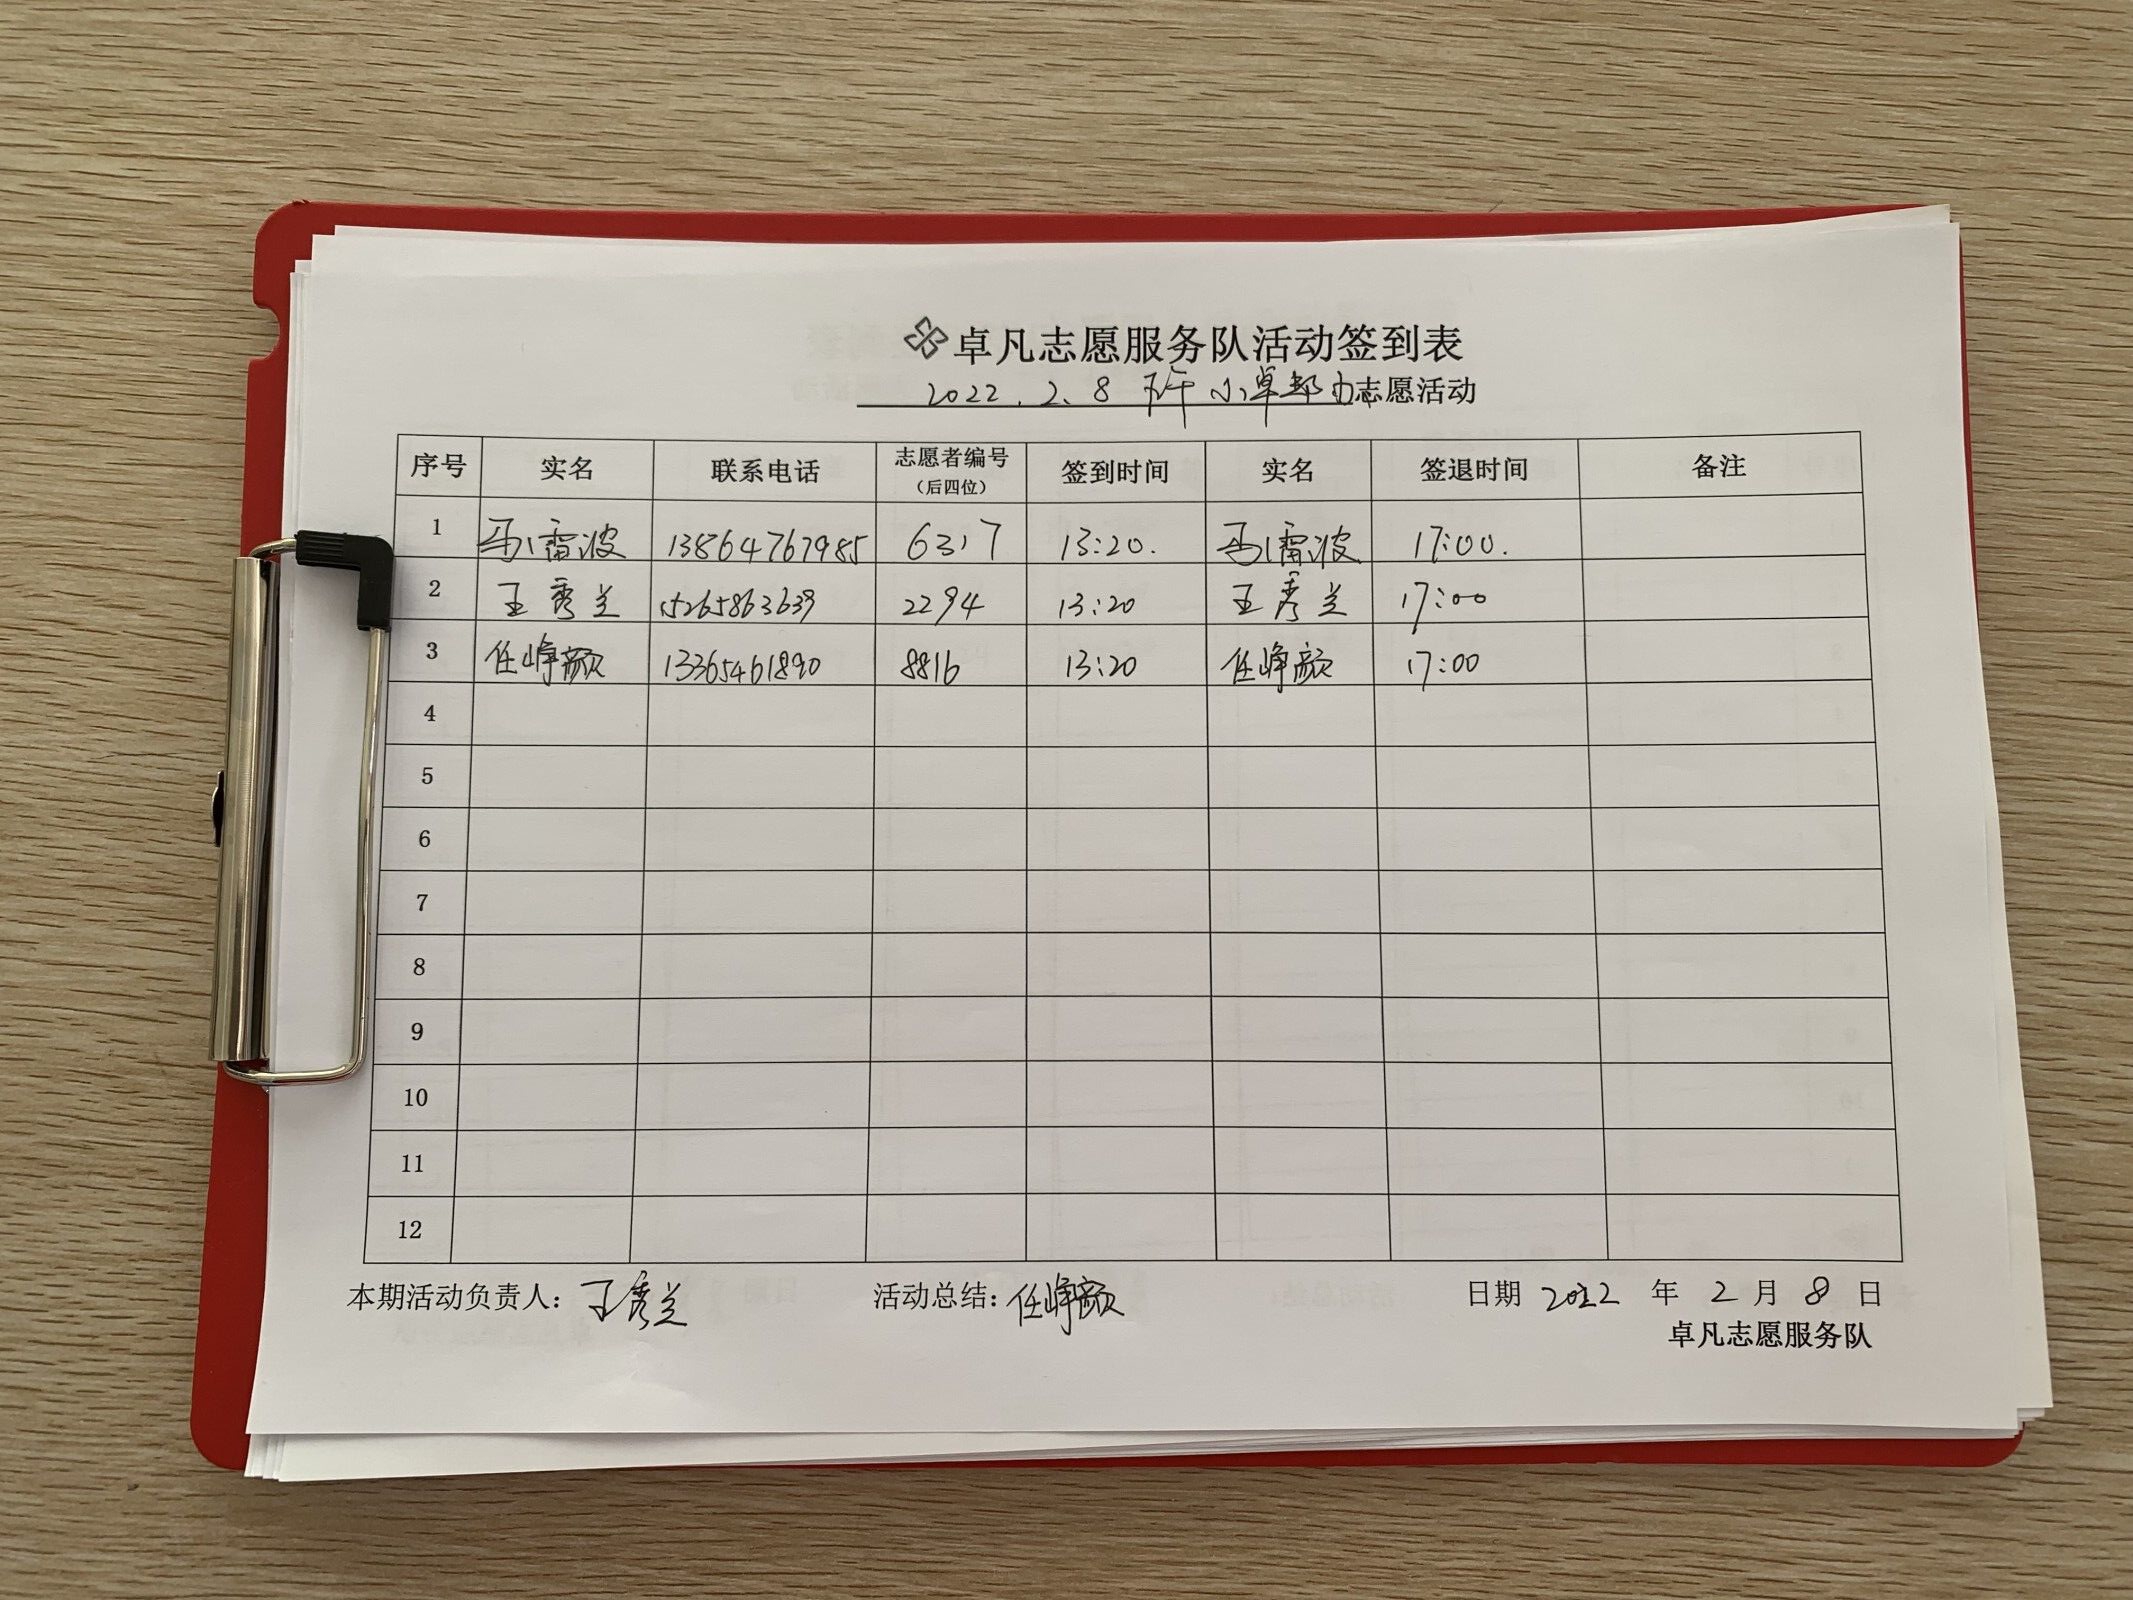 卓凡志愿服务队活动签到表
2022.2.8 下午 小卓帮办志愿活动
序号 实名 联系电话 志愿者编号（后四位） 签到时间 实名 签退时间 备注
1 冯雷波 13864767985 6317 13:20. 冯雷波 17:00.
2 王秀兰 15265863639 2294 13:20 王秀兰 17:00
3 任峥颜 13365461890 8816 13:20 任峥颜 17:00
4
5
6
7
8
9
10
11
12
本期活动负责人：王秀兰 活动总结：任峥颜 日期 2022 年 2 月 8 日
卓凡志愿服务队